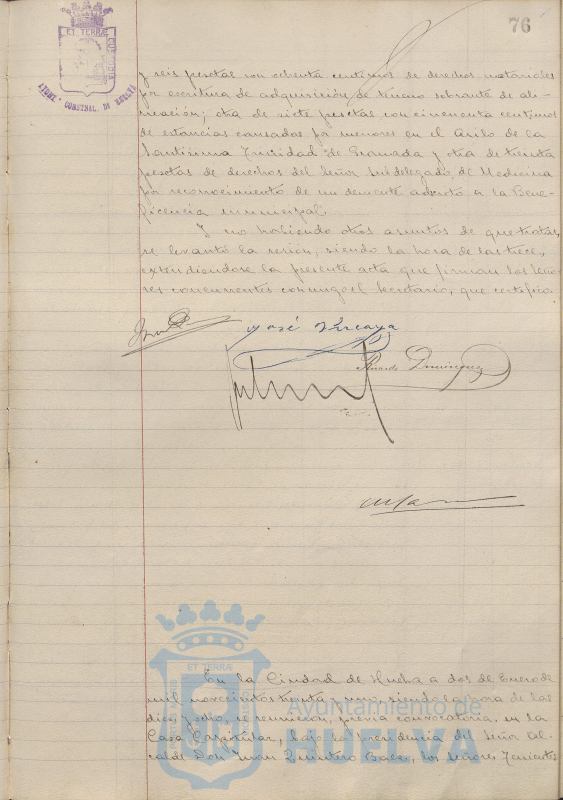 76
ET TERRÆ CUSTODIA
AYUNT. CONSTNAL. DE HUELVA
y seis pesetas con ochenta centimos de derechos notariales
por escritura de adquisición de terreno sobrante de ali-
neación; otra de siete pesetas con cincuenta centimos
de estancias causadas por menores en el Asilo de la
Santísima Trinidad de Granada y otra de treinta
pesetas de derechos del Señor Subdelegado de Medicina
por reconocimiento de un demente adscrito a la Bene-
ficencia municipal.
Y no habiendo otros asuntos de que tratar,
se levantó la sesión, siendo la hora de las trece,
extendiendose la presente acta que firman los Seño-
res concurrentes conmigo el Secretario, que certifico.
José
Ricardo Dominguez
En la Ciudad de Huelva a dos de Enero de
mil novecientos treinta y uno, siendo la hora de las
diez y ocho, se reunieron, previa convocatoria, en la
Casa Capitular, bajo la Presidencia del Señor Al-
calde Don Juan Quintero Baez, los señores Tenientes
ET TERRÆ
Ayuntamiento de
HUELVA